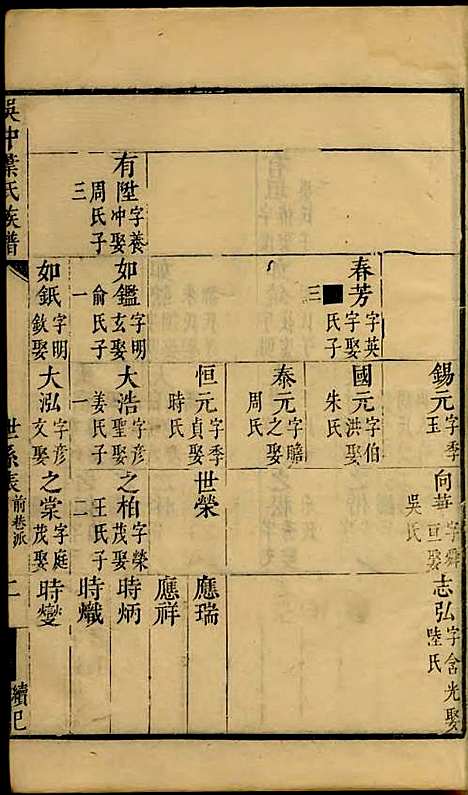 錫元字季玉
向華字舜亘娶吳氏
志弘字含光娶陸氏
春芳字英字娶■氏子三
國元字伯洪娶朱氏
泰元字瞻之娶周氏
恒元字季貞娶時氏
世榮
應瑞
應祥
有陞字養冲娶周氏子三
如鑑字明玄娶俞氏子一
大浩字彥聖娶姜氏子一
之柏字榮茂娶王氏子二
時炳
時熾
如鈺字明欽娶
大泓字彥文娶
之棠字庭茂娶
時燮
吳中葉氏族譜
世系表前巷派
二
續巳